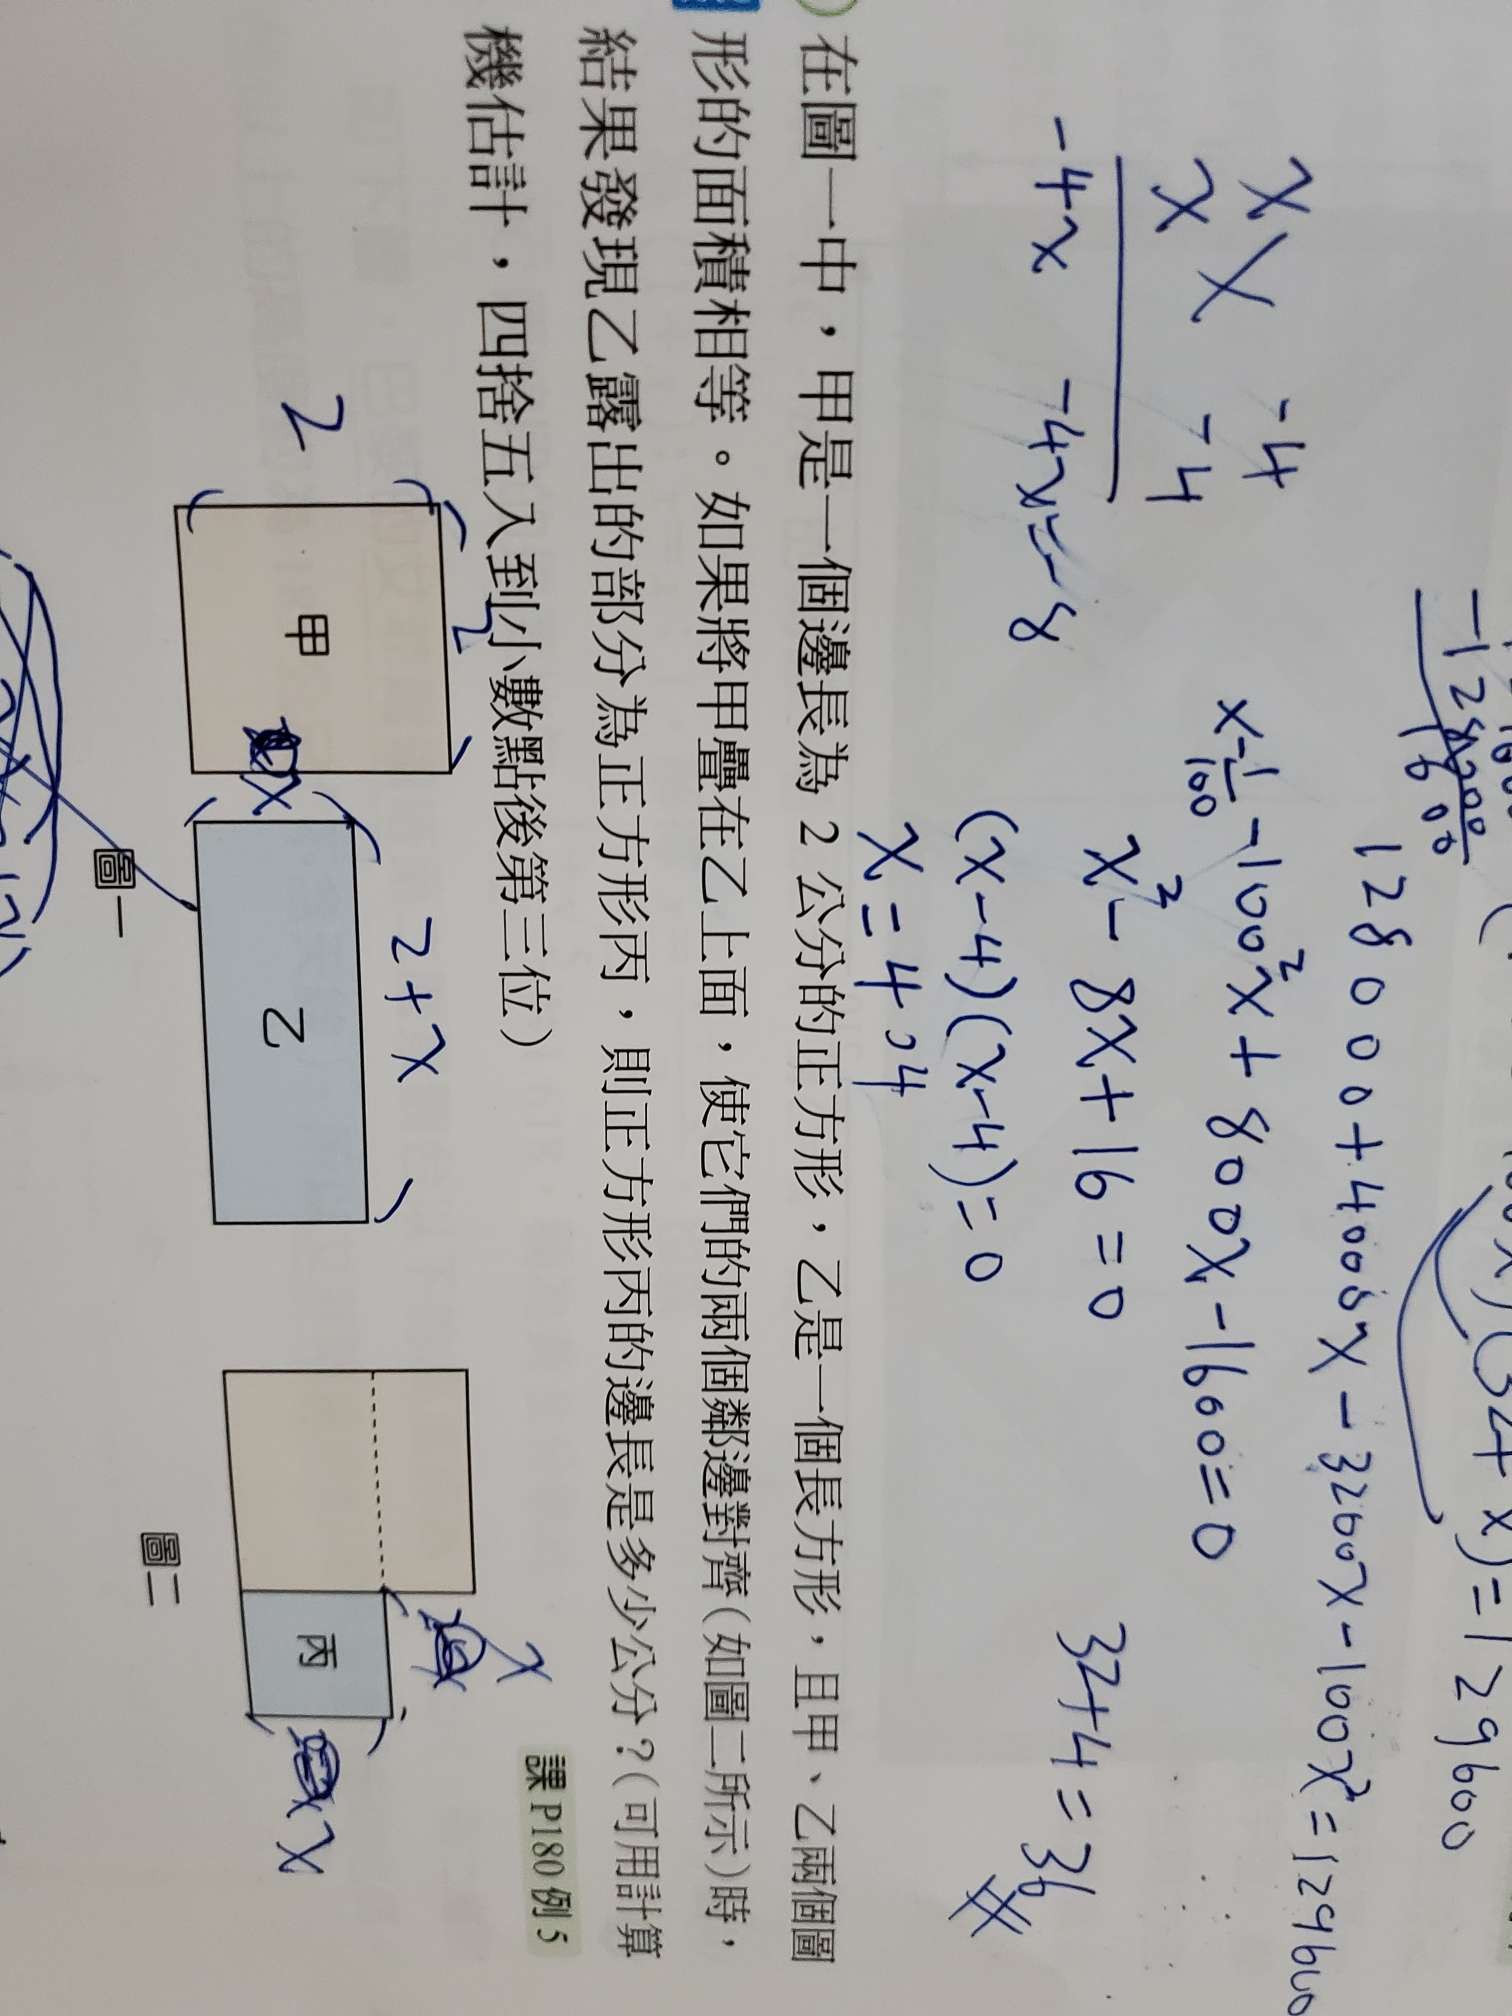 128000+4000x-3200x-100x²=129600
-100²x+800x-1600=0
x-1/100
x²-8x+16=0
(x-4)(x-4)=0
x=4,4
32+4=36
x -4
x -4
-4x -4x=-8
在圖一中，甲是一個邊長為 2 公分的正方形，乙是一個長方形，且甲、乙兩個圖
形的面積相等。如果將甲疊在乙上面，使它們的兩個鄰邊對齊(如圖二所示)時，
結果發現乙露出的部分為正方形丙，則正方形丙的邊長是多少公分？(可用計算
機估計，四捨五入到小數點後第三位)
課 P180 例 5
2
2
甲
x
2+x
乙
圖一
x
丙
x
圖二